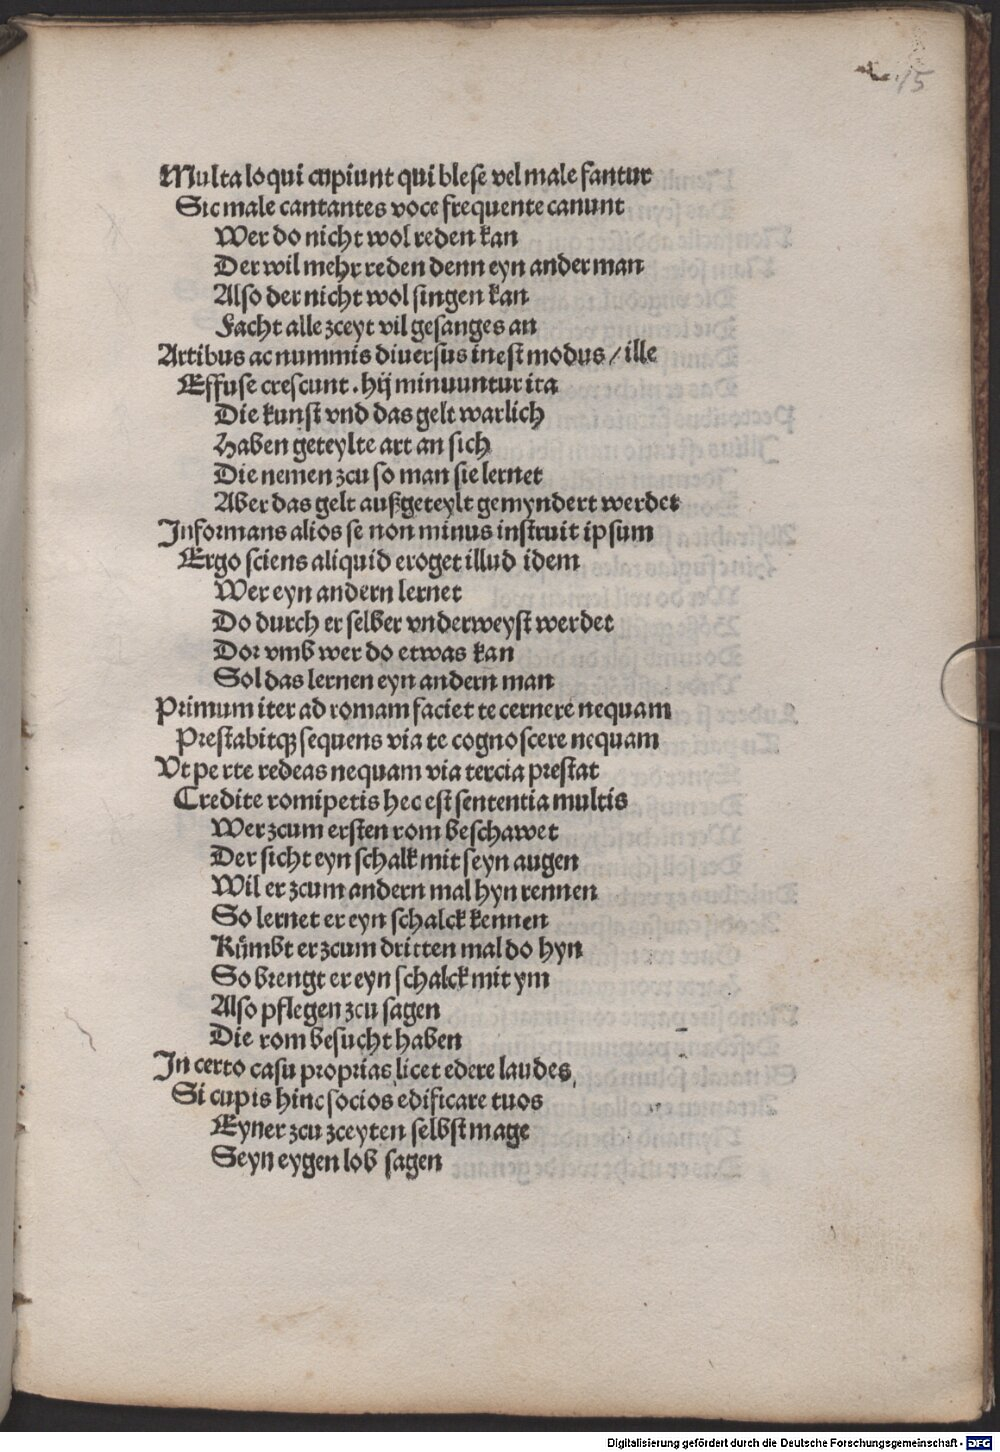 15
Multa loqui cupiunt qui blese vel male fantur
Sic male cantantes voce frequente canunt
Wer do nicht wol reden kan
Der wil mehr reden denn eyn ander man
Also der nicht wol singen kan
Facht alle zceyt vil gesanges an
Artibus ac nummis diversus inest modus / ille
Effuse crescunt . hij minuuntur ita
Die kunst vnd das gelt warlich
Haben geteylte art an sich
Die nemen zcu so man sie lernet
Aber das gelt außgeteylt gemyndert werdet
Informans alios se non minus instruit ipsum
Ergo sciens aliquid eroget illud idem
Wer eyn andern lernet
Do durch er selber vnderweyst werdet
Dor vmb wer do etwas kan
Sol das lernen eyn andern man
Primum iter ad romam faciet te cernere nequam
Prestabitqꝫ sequens via te cognoscere nequam
Vt per te redeas nequam via tercia prestat
Credite romipetis hec est sententia multis
Wer zcum ersten rom beschawet
Der sicht eyn schalk mit seyn augen
Wil er zcum andern mal hyn rennen
So lernet er eyn schalck kennen
Kümbt er zcum dritten mal do hyn
So brengt er eyn schalck mit ym
Also pflegen zcu sagen
Die rom besucht haben
In certo casu proprias licet edere laudes
Si cupis hinc socios edificare tuos
Eyner zcu zceyten selbst mage
Seyn eygen lob sagen
Digitalisierung gefördert durch die Deutsche Forschungsgemeinschaft - DFG